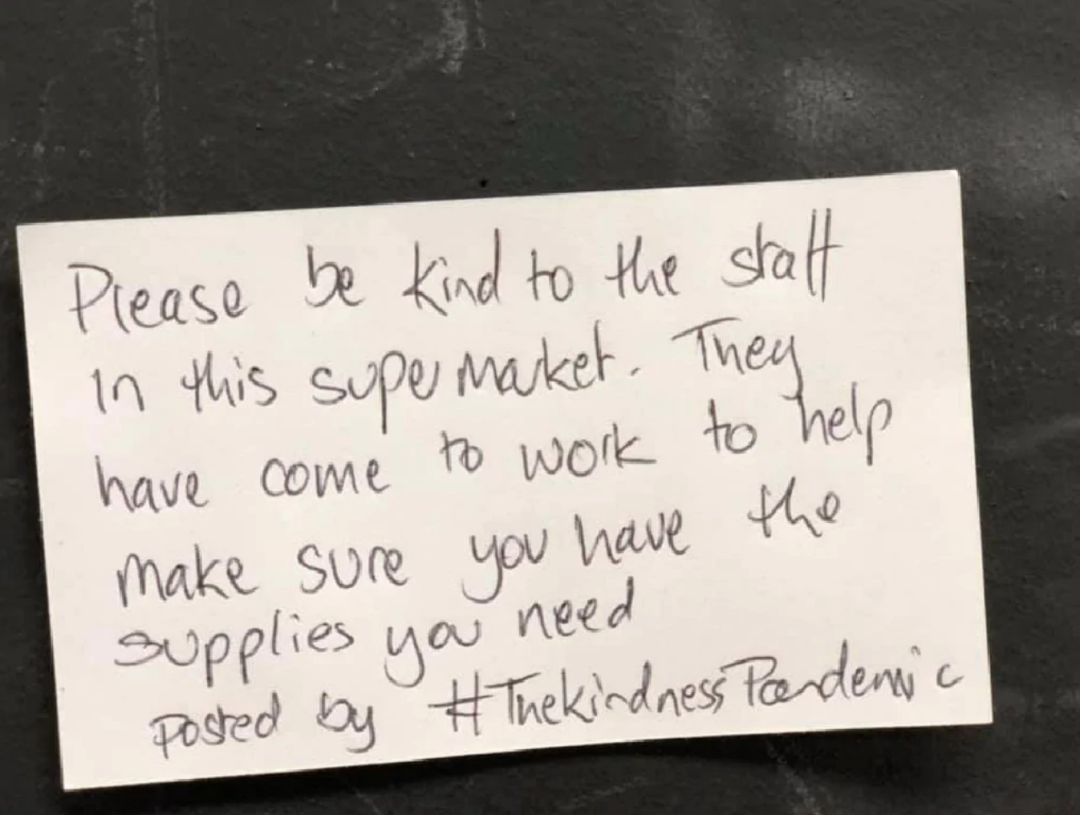 Please be kind to the staff
in this supermarket. They
have come to work to help
make sure you have the
supplies you need
posted by #ThekindnessPandemic